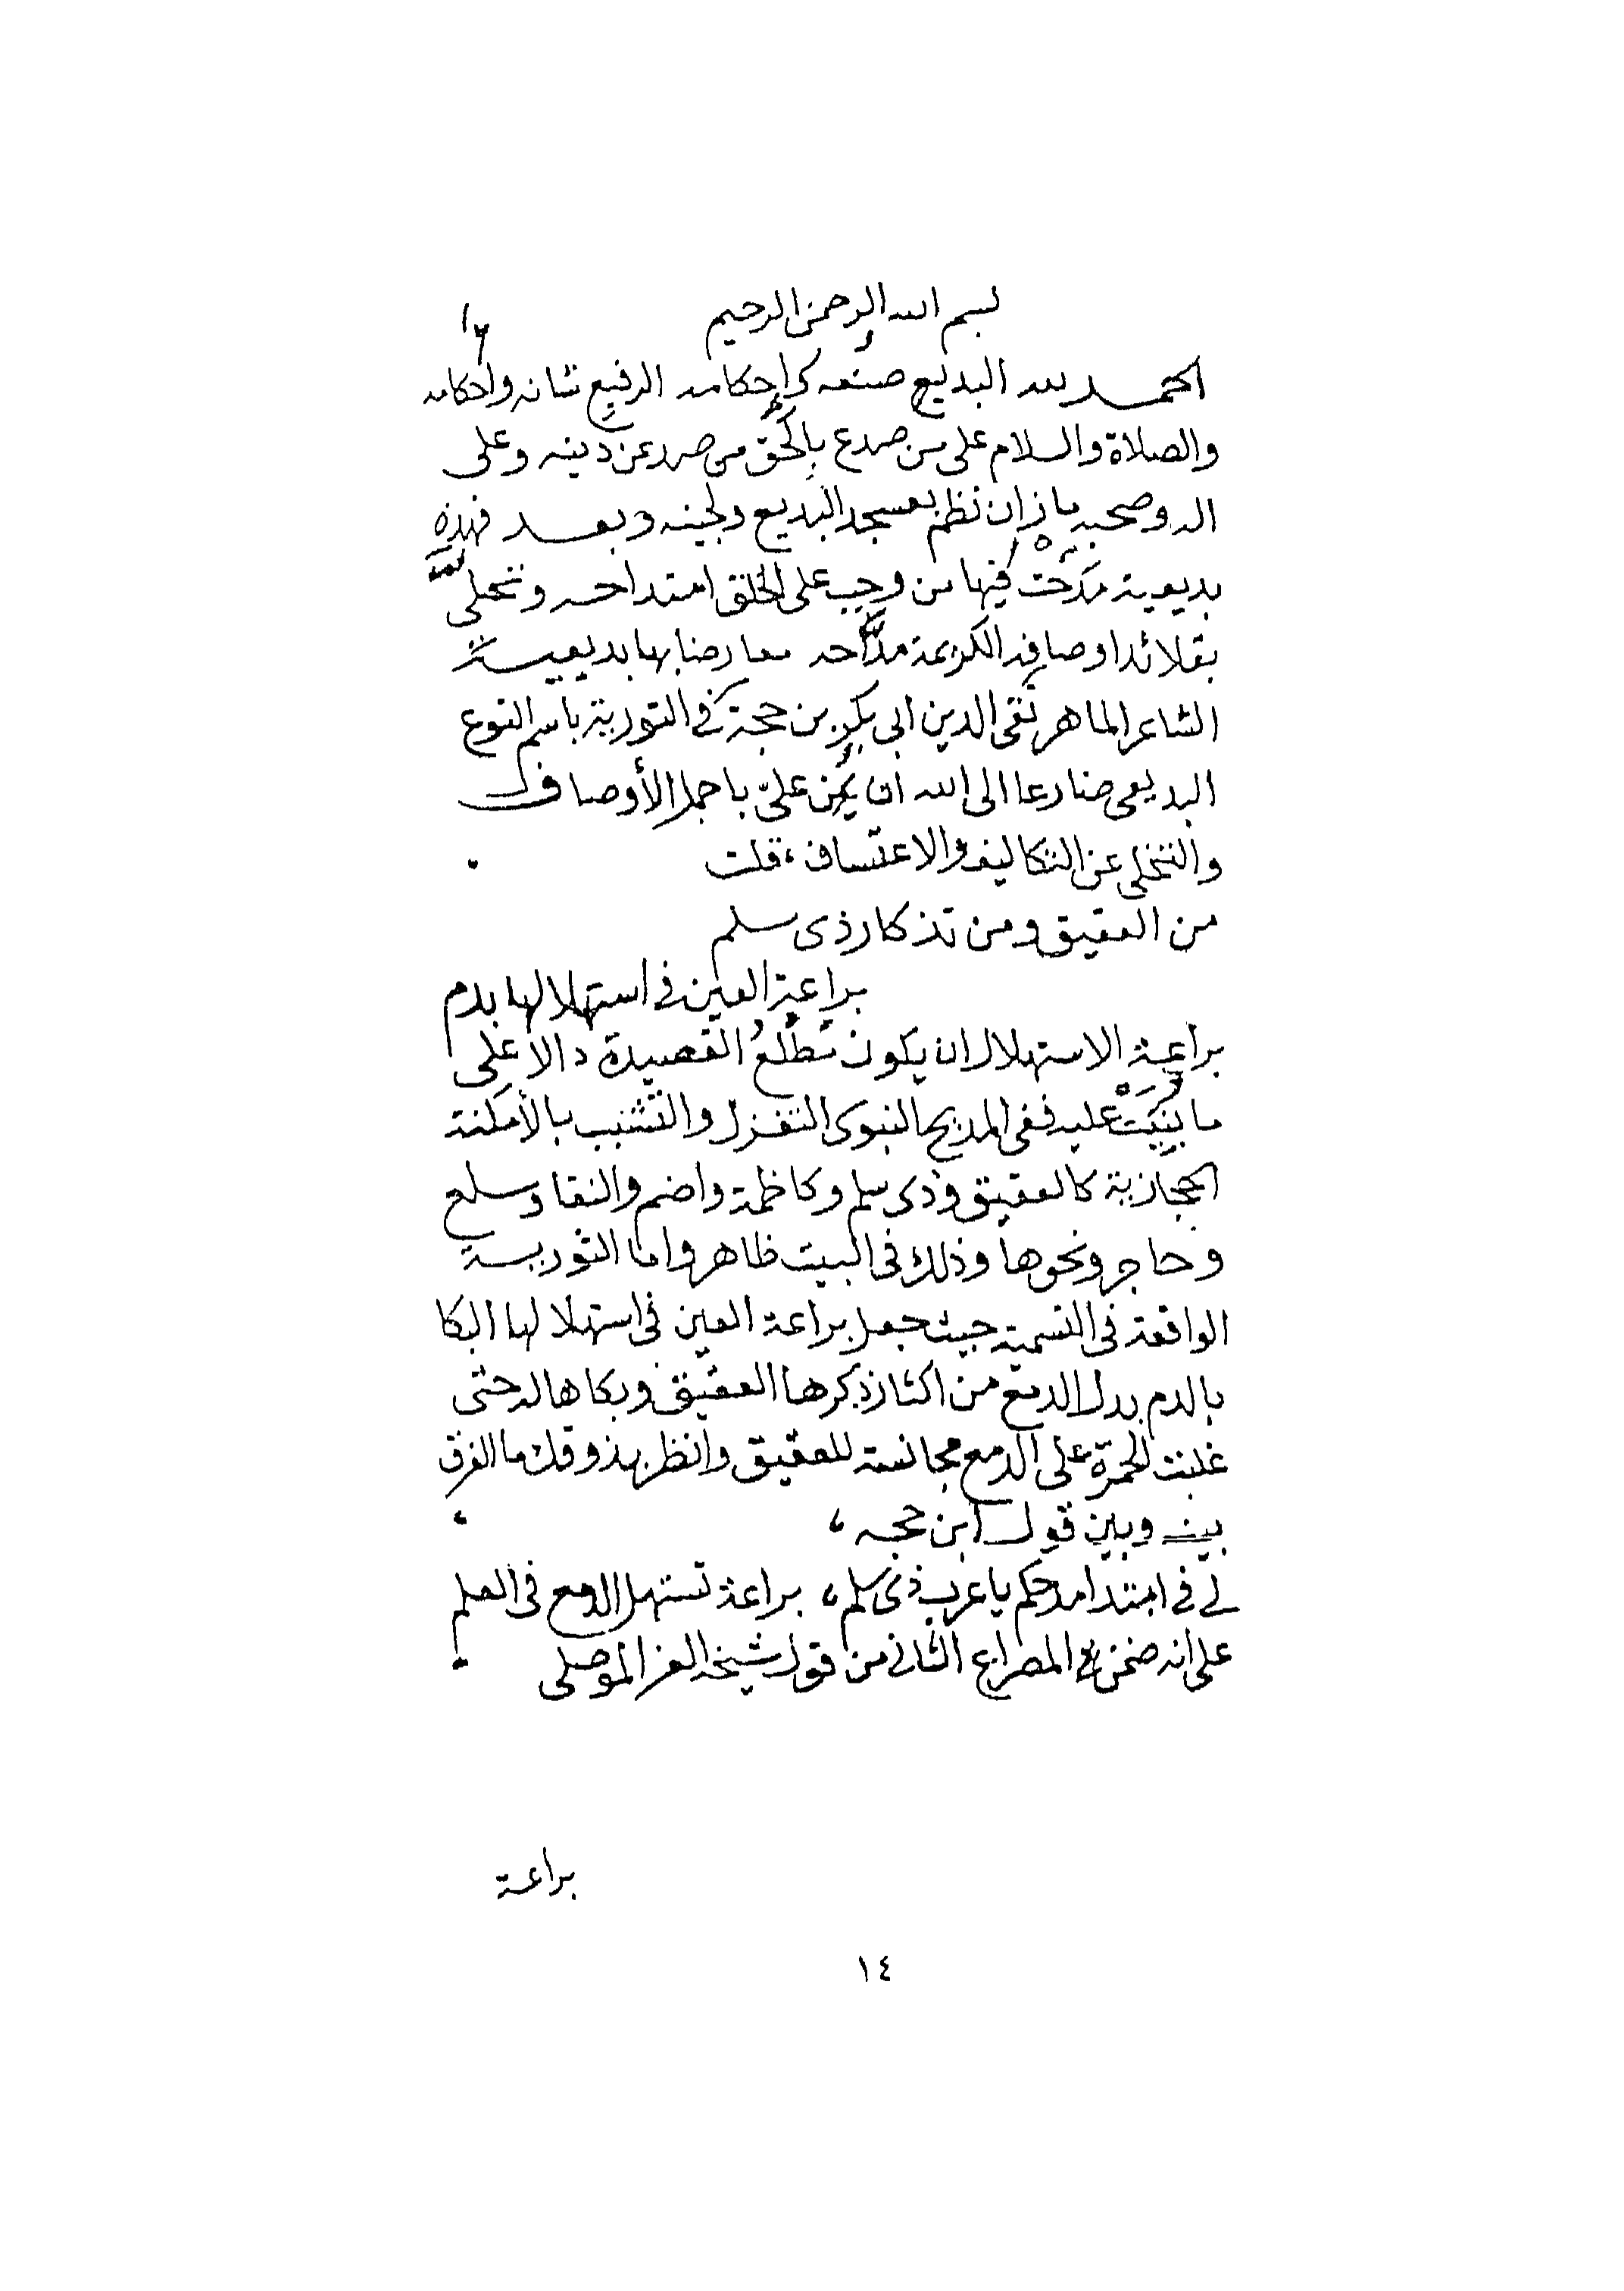 بسم الله الرحمن الرحيم
الحمد لله البديع صنعه وإحكامه الرفيع شانه واحكامه
والصلاة والسلام على من صدع بالحق من صد عن دينه وعلى
اله وصحبه ما زان نظم بعسجد البديع ولجينه وبعد فهذه
بديعية مدحت فيها من وجب على الخلق امتداحه وتحلى
بقلائد اوصافه الكريمة مدّاحه معارضا بها بديعية
الشاعر الماهر تقى الدين ابى بكر بن حجة في التورية باسم النوع
البديعى ضارعا الى الله ان يمن عليّ باجمل الأوصاف
والتخلى عن التكاليف والاعتساف، قلت
من العقيق ومن تذكار ذى سلم
براعة العين في استهلالها بدم
براعة الاستهلال ان يكون مطلعُ القصيدة دالا على
ما بنيت عليه ففى المديح النبوى التغزل والتشبب بالأمكنة
الحجازية كالعقيق وذى سلم وكاظمة واضم والنقا وسلع
وحاجر ونحوها وذلك فى البيت ظاهر واما التورية
الواقعة فى التسمية حيث جعل براعة العين فى استهلالها البكا
بالدم بدل الدمع من اكثار ذكرها العقيق وبكاها له حتى
غلبت الحمرة على الدمع مجانسة للعقيق وانظر بذوقك ما الفرق
بينه وبين قول ابن حجه،
لى فى ابتدا مدحكم يا عرب ذى سلم، براعة تستهل الدمع فى العلم
على انه ضمن المصراع الثانى من قول شيخه العز الموصلى
براعة
١٤